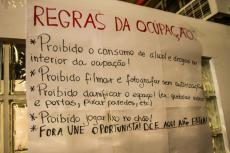 REGRAS DA OCUPAÇÃO
*Proibido o consumo de alcool e drogas no
interior da ocupação!
*Proibido filmar e fotografar sem autorização
*Proibido danificar o espaço! (ex: quebrar
e portas, pixar paredes, etc)
*Proibido jogar lixo no chão!
*FORA UNE OPORTUNISTA! DCE AQUI NÃO